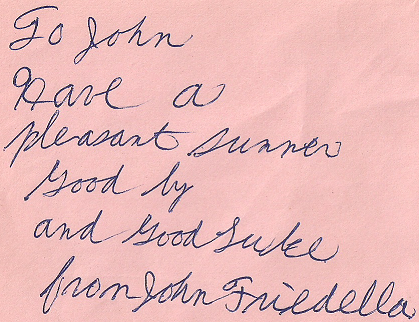 To John
Have a
pleasant summer
Good by
and Good Luke
from John Friedella